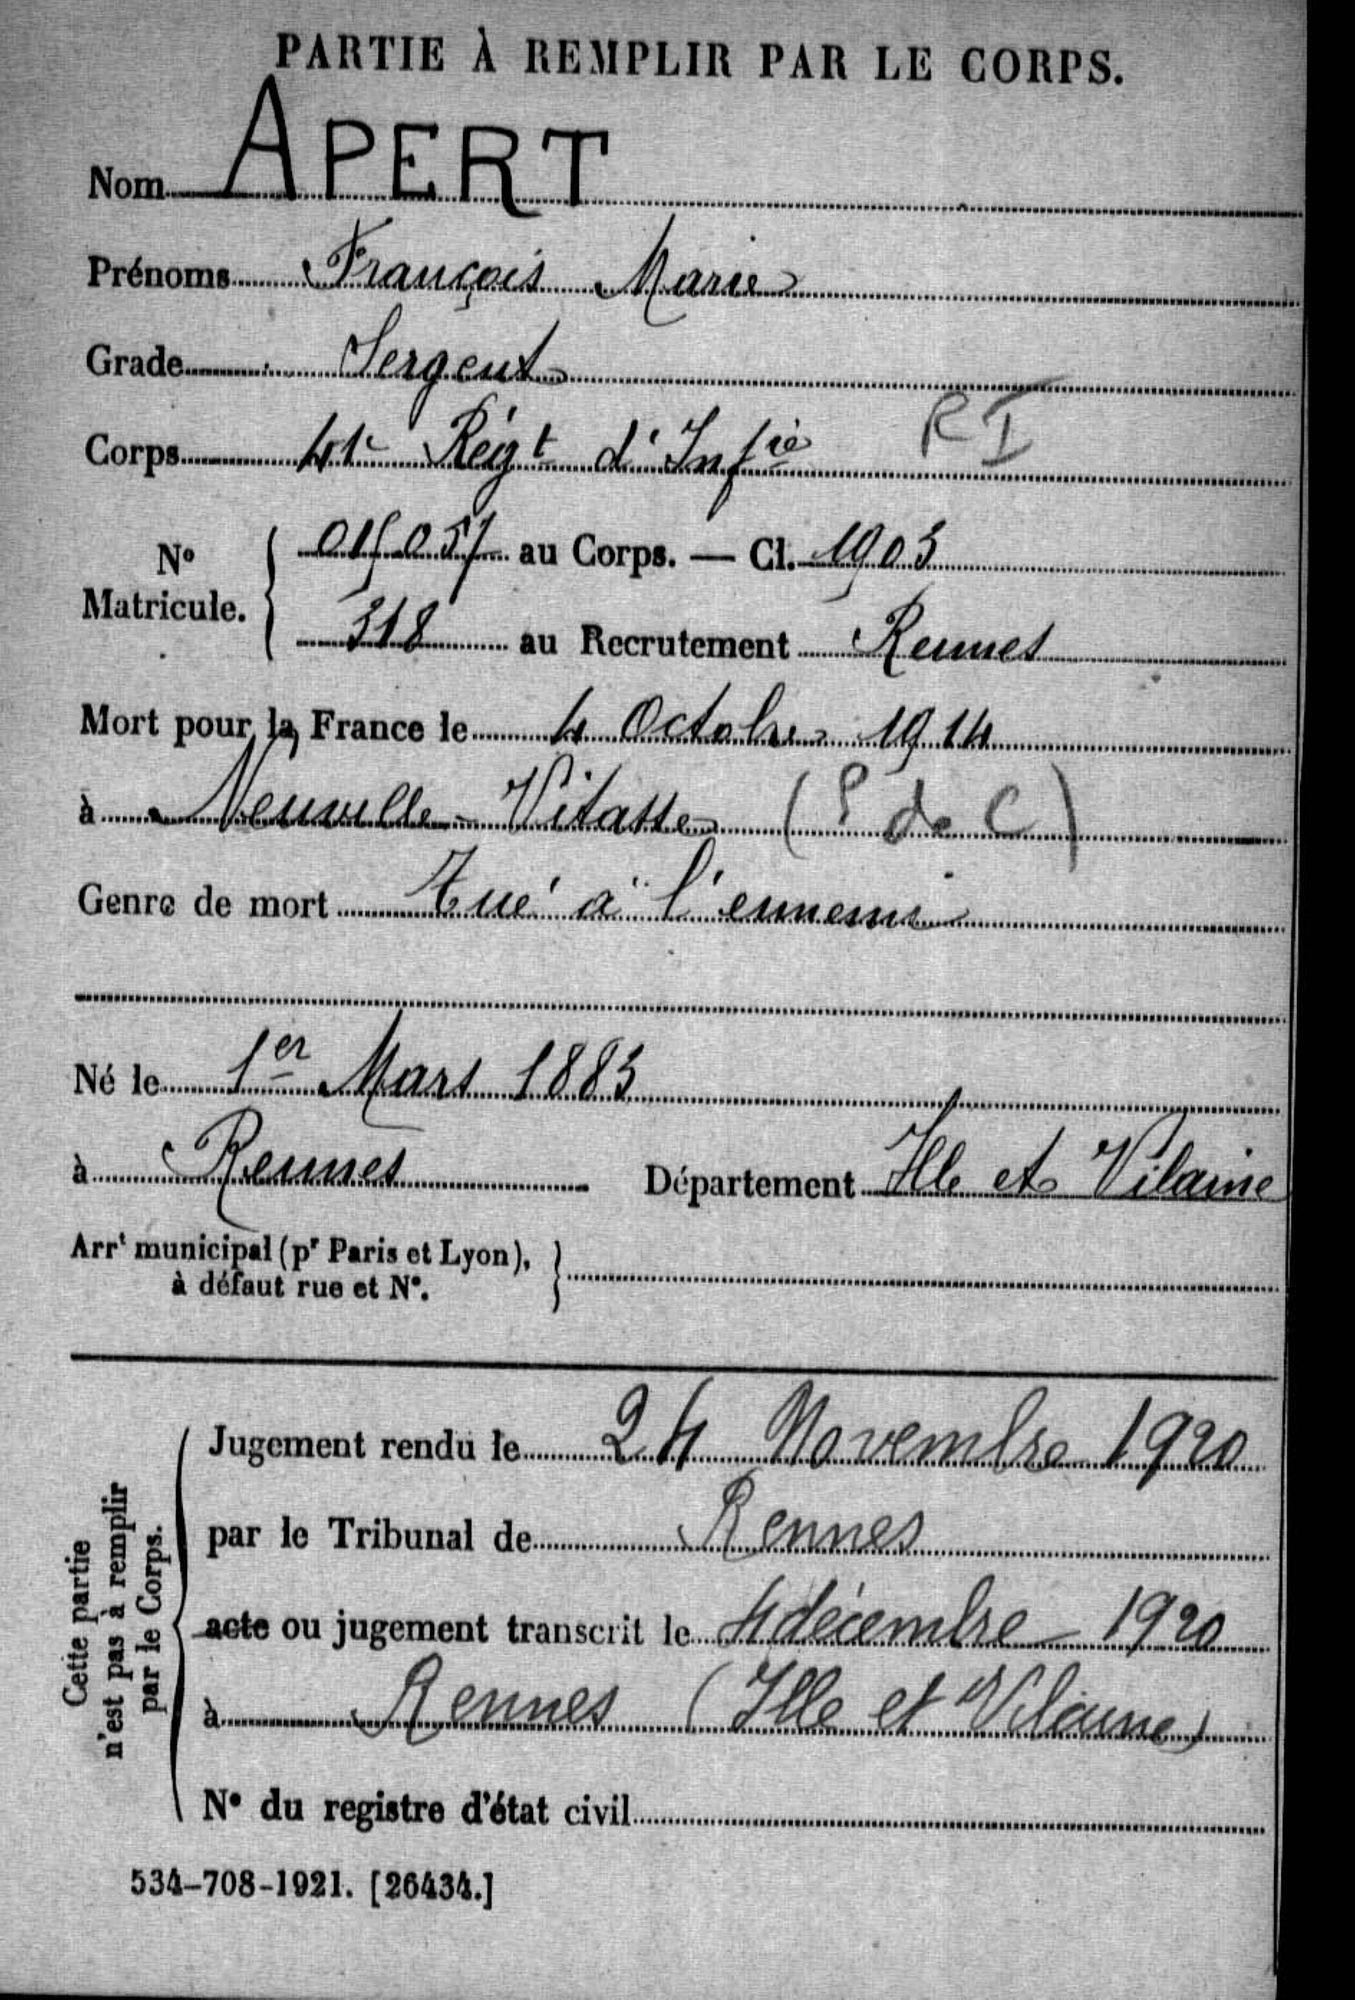 PARTIE À REMPLIR PAR LE CORPS.
Nom APERT
Prénoms François Marie
Grade Sergent
Corps 41e Régt d'Infie RI
N° Matricule. { 015057 au Corps. — Cl. 1903
318 au Recrutement Rennes
Mort pour la France le 4 Octobre 1914
à Neuville-Vitasse (P de C)
Genre de mort Tué à l'ennemi
Né le 1er Mars 1883
à Rennes Département Ille et Vilaine
Arrt municipal (pr Paris et Lyon), à défaut rue et N°. }
Cette partie n'est pas à remplir par le Corps. {
Jugement rendu le 24 Novembre 1920
par le Tribunal de Rennes
acte ou jugement transcrit le 4 décembre 1920
à Rennes (Ille et Vilaine)
N° du registre d'état civil
534-708-1921. [26434.]